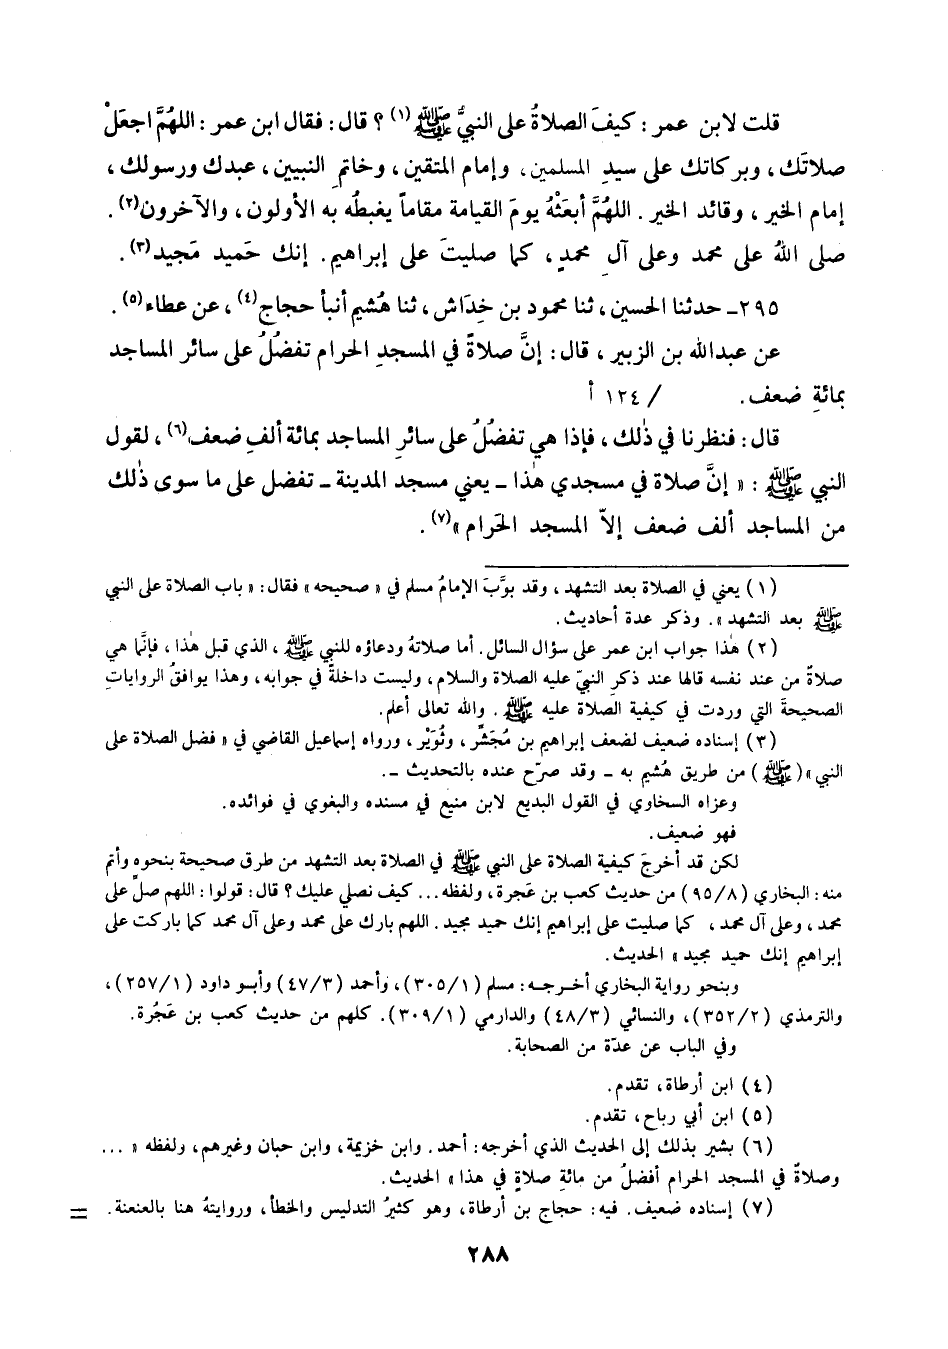 قلت لابن عمر : كيفَ الصلاةُ على النبيِّ ﷺ(١) ؟ قال : فقال ابن عمر : اللهُمَّ اجعَلْ
صلاتَك ، وبركاتك على سيدِ المسلمين، وإمام المتقين ، وخاتمِ النبيين ، عبدك ورسولك ،
إمام الخير ، وقائد الخير . اللهُمَّ أبعَثْهُ يومَ القيامة مقاماً يغبطُه به الأولون ، والآخرون(٢) .
صلى اللهُ على محمد وعلى آلِ محمدٍ ، كما صليتَ على إبراهيم. إنك حَميد مَجيد(٣) .
٢٩٥ـ حدثنا الحسين ، ثنا محمود بن خِدَاش ، ثنا هُشيم أنبأ حجاج(٤) ، عن عطاء(٥) .
عن عبدالله بن الزبير ، قال : إنَّ صلاةً في المسجدِ الحرام تفضُلُ على سائر المساجد
بمائةِ ضعف. / ١٢٤ أ
قال : فنظرنا في ذٰلك ، فإذا هي تفضُلُ على سائرِ المساجد بمائة ألفِ ضعف(٦) ، لقول
النبي ﷺ : « إنَّ صلاة في مسجدي هٰذا ـ يعني مسجد المدينة ـ تفضل على ما سوى ذٰلك
من المساجد ألف ضعف إلاّ المسجد الحَرام »(٧) .
(١) يعني في الصلاة بعد التشهد ، وقد بوَّبَ الإمامُ مسلم في « صحيحه » فقال : « باب الصلاة على النبي
ﷺ بعد التشهد » . وذكر عدة أحاديث .
(٢) هٰذا جواب ابن عمر على سؤال السائل . أما صلاتهُ ودعاؤه للنبي ﷺ ، الذي قبل هٰذا ، فإنَّما هي
صلاةٌ من عند نفسه قالها عند ذكرِ النبيّ عليه الصلاة والسلام ، وليست داخلةً في جوابه ، وهذا يوافقُ الروايات
الصحيحةَ التي وردت في كيفية الصلاة عليه ﷺ . والله تعالى أعلم .
(٣) إسناده ضعيف لضعف إبراهيم بن مُجَشِّر ، وثُوَيْر ، ورواه إسماعيل القاضي في « فضل الصلاة على
النبي » (ﷺ) من طريق هُشيم به ـ وقد صرّح عنده بالتحديث ـ .
وعزاه السخاوي في القول البديع لابن منيع في مسنده والبغوي في فوائده .
فهو ضعيف .
لكن قد أخرجَ كيفية الصلاة على النبي ﷺ في الصلاة بعد التشهد من طرق صحيحة بنحوه وأتم
منه : البخاري (٨/ ٩٥) من حديث كعب بن عَجرة ، ولفظه ... كيف نصلي عليك ؟ قال : قولوا : اللهم صلِّ على
محمد ، وعلى آل محمد ، كما صليت على إبراهيم إنك حميد مجيد . اللهم بارك على محمد وعلى آل محمد كما باركت على
إبراهيم إنك حميد مجيد » الحديث .
وبنحو رواية البخاري أخرجه : مسلم (١/ ٣٠٥) ، وأحمد (٣/ ٤٧) وأبو داود (١/ ٢٥٧) ،
والترمذي (٢/ ٣٥٢) ، والنسائي (٣/ ٤٨) والدارمي (١/ ٣٠٩) . كلهم من حديث كعب بن عَجُرة .
وفي الباب عن عدّة من الصحابة .
(٤) ابن أرطاة ، تقدم .
(٥) ابن أبي رباح ، تقدم .
(٦) يشير بذلك إلى الحديث الذي أخرجه : أحمد . وابن خزيمة ، وابن حبان وغيرهم ، ولفظه « ...
وصلاةٌ في المسجد الحرام أفضلُ من مائةِ صلاةٍ في هذا » الحديث .
(٧) إسناده ضعيف . فيه : حجاج بن أرطاة ، وهو كثيرُ التدليس والخطأ ، وروايتهُ هنا بالعنعنة . =
٢٨٨